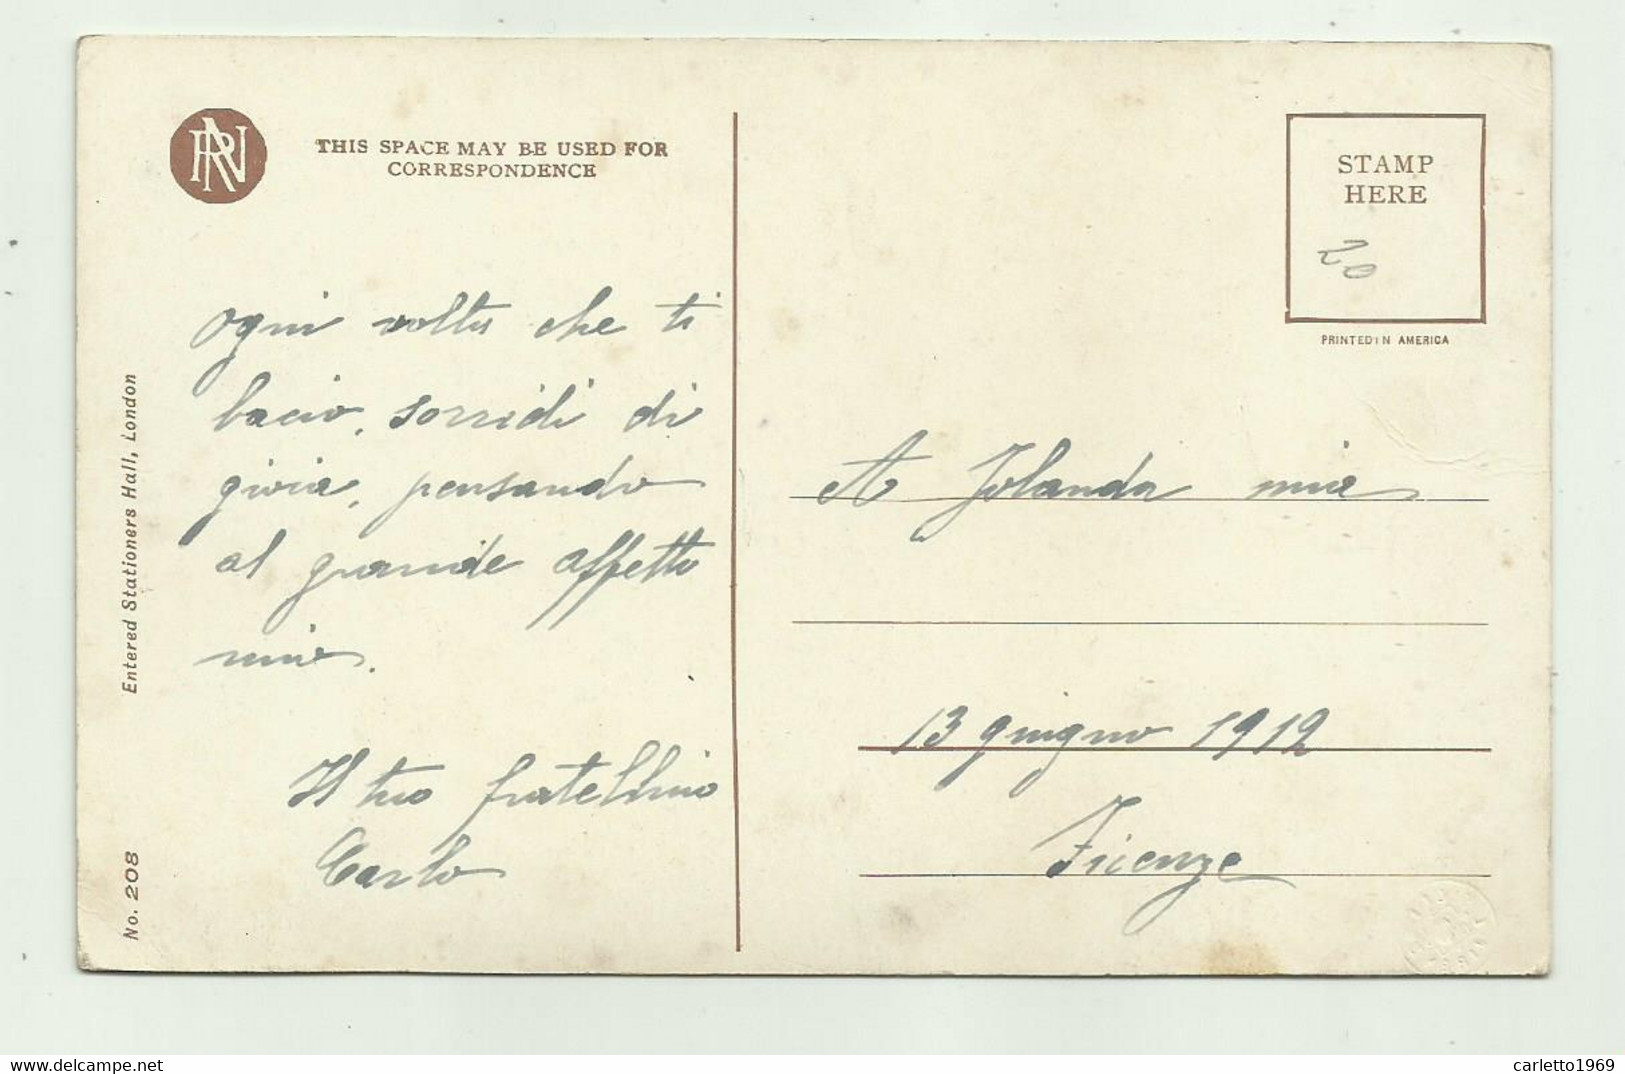 RN
THIS SPACE MAY BE USED FOR
CORRESPONDENCE
STAMP
HERE
20
PRINTED IN AMERICA
Ogni volta che ti
bacio, sorridi di
gioia, pensando
al grande affetto
mio.
Il tuo fratellino
Carlo
A Jolanda mia
13 giugno 1912
Firenze
Entered Stationers Hall, London
No. 208
delcampe.net
carletto1969